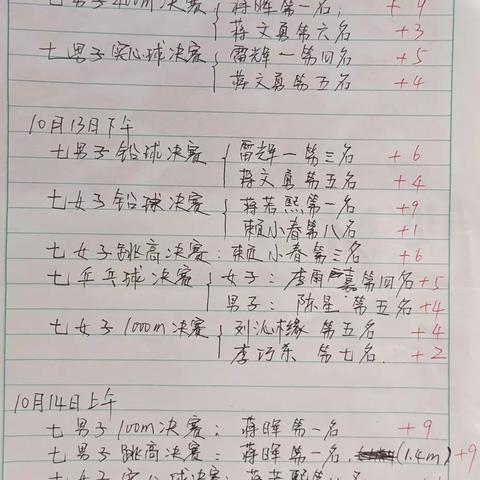 七男子400m决赛 蒋晖第一名; +9
蒋文勇第六名 +3
七男子实心球决赛 雷辉一第四名 +5
蒋文勇第五名 +4
10月13日下午
七男子铅球决赛 雷辉一第三名 +6
蒋文勇第五名 +4
七女子铅球决赛 蒋若熙第一名 +9
赖小春第八名 +1
七女子跳高决赛:赖小春第三名 +6
七乒乓球决赛 女子:李雨嘉第四名 +5
男子:陈星 第五名 +4
七女子1000m决赛 刘沁缘 第五名 +4
李巧东 第七名. +2
10月14日上午
七男子100m决赛:蒋晖第一名 +9
七男子跳高决赛:蒋晖第一名.(1.4m) +9
七女子实心球决赛:蒋若熙第